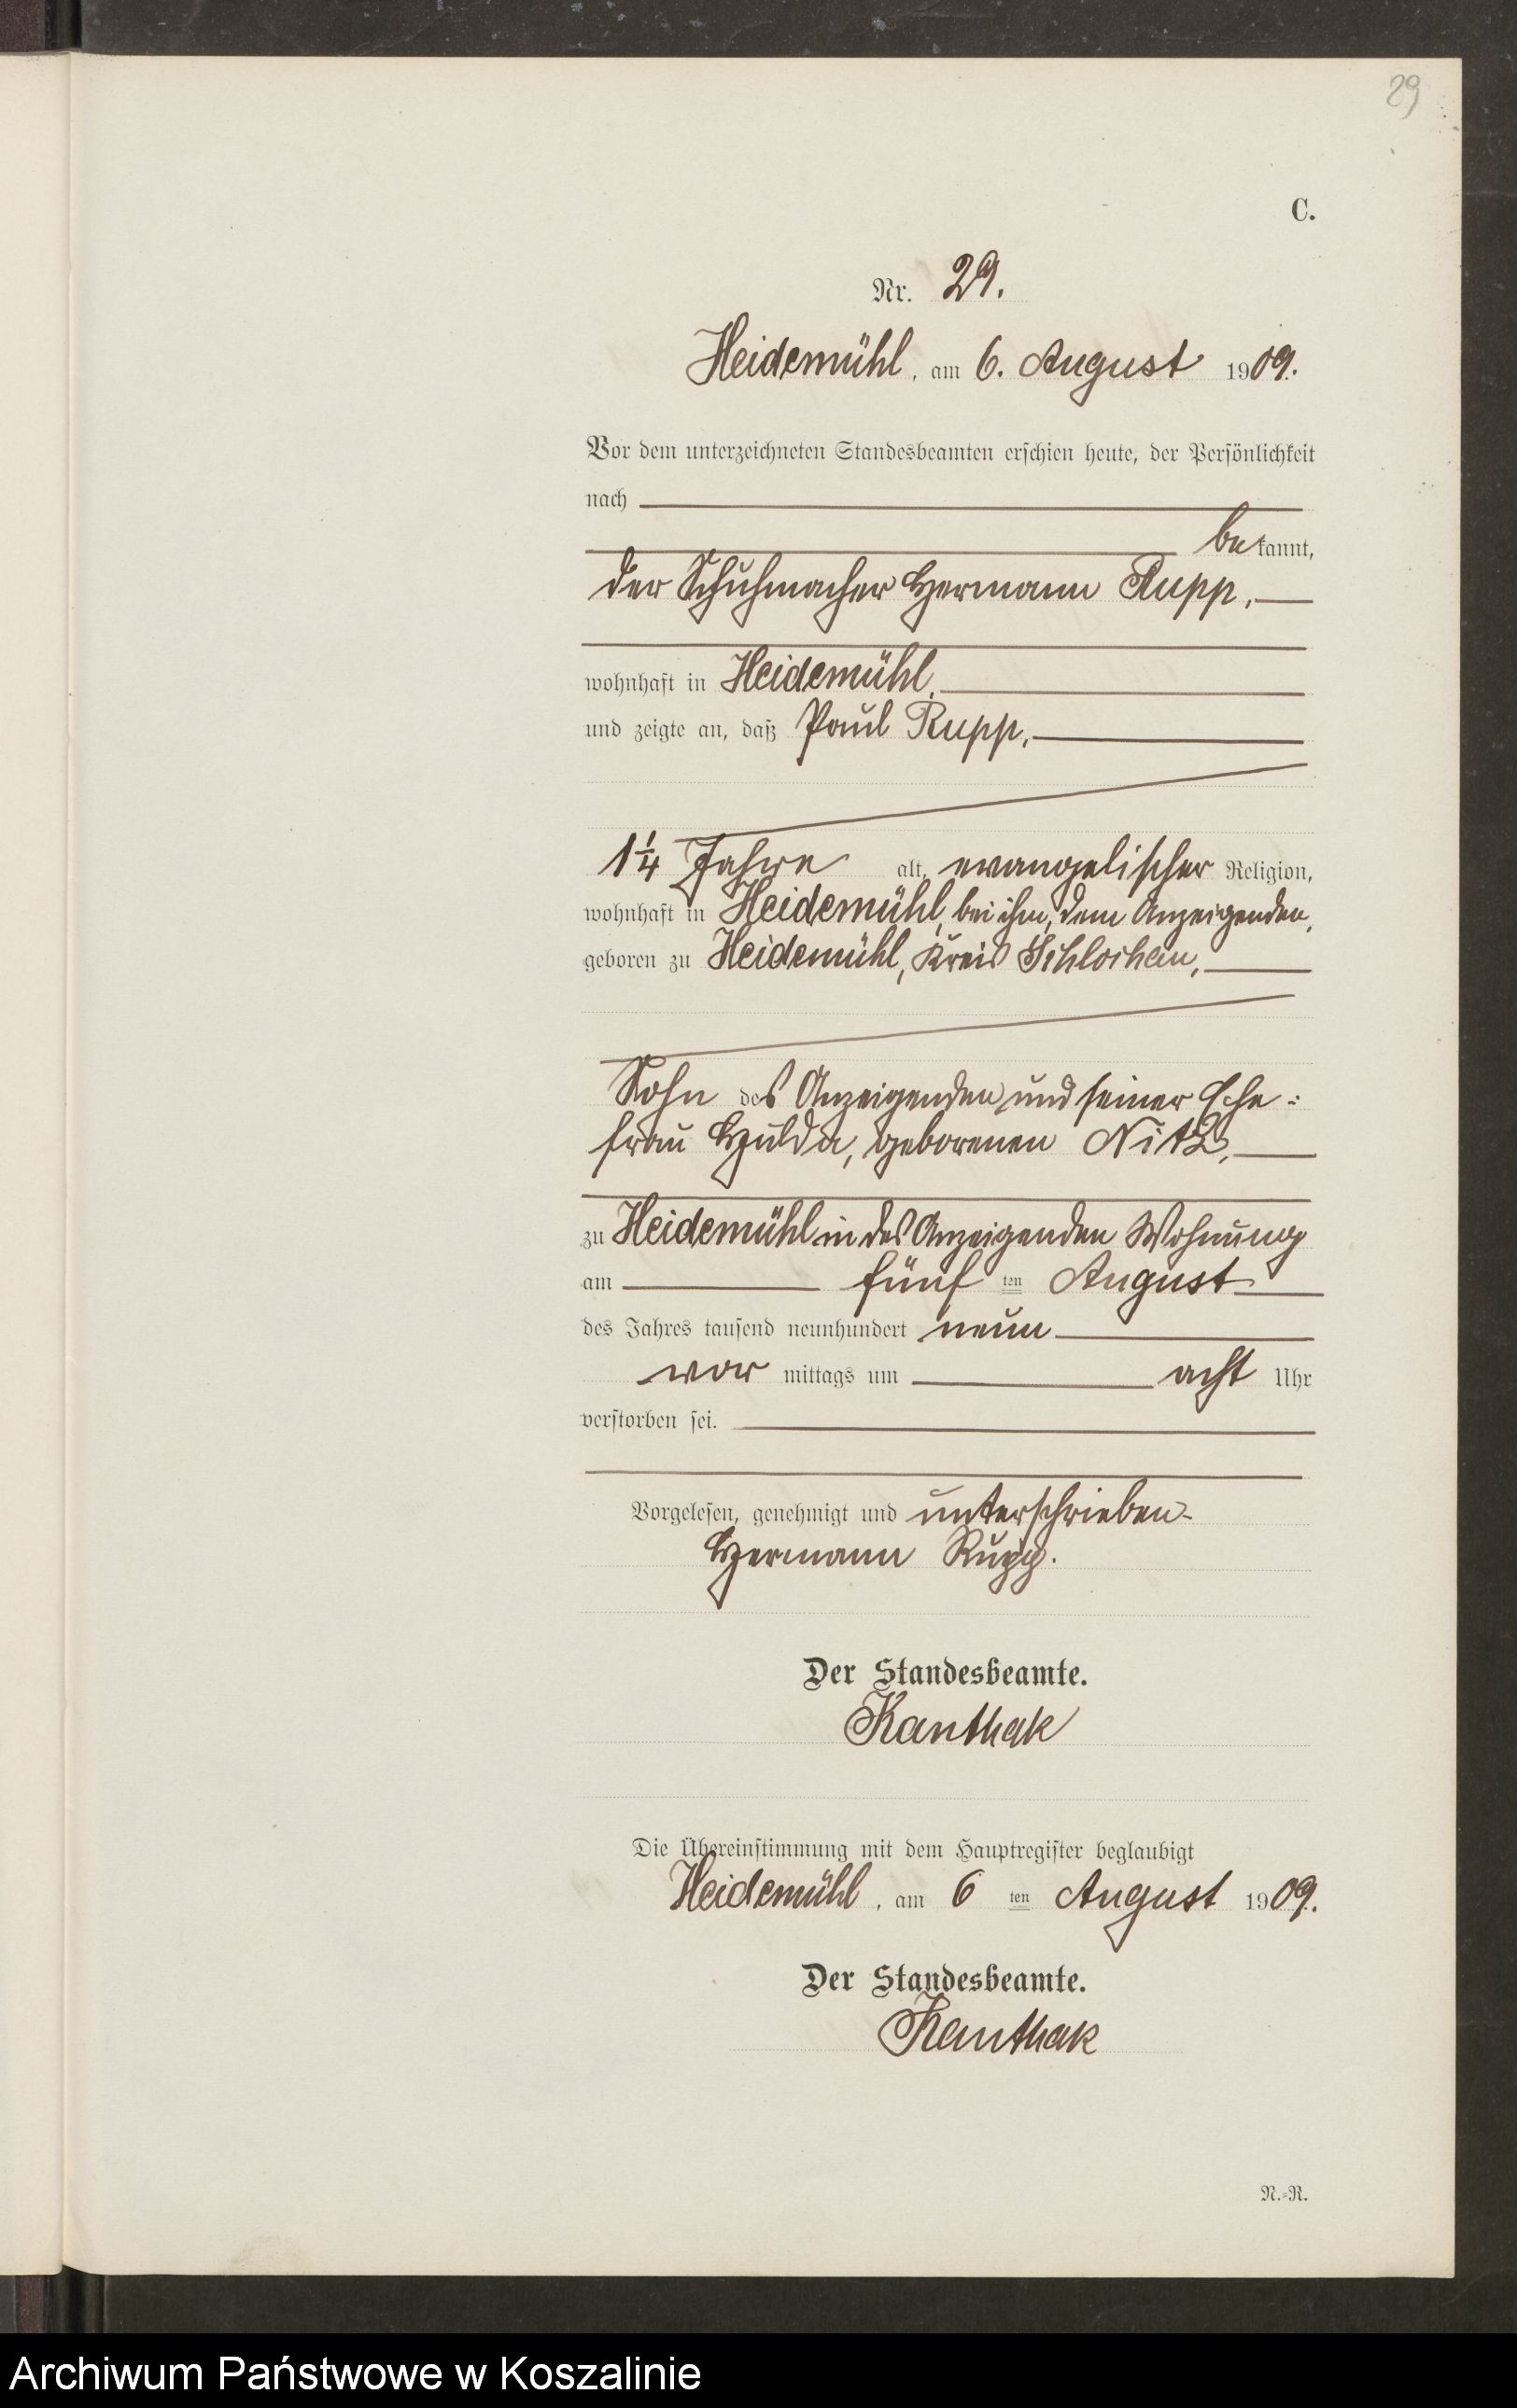 29
C.
Nr. 29.
Heidemühl, am 6. August 1909.
Vor dem unterzeichneten Standesbeamten erschien heute, der Persönlichkeit
nach
bekannt,
der Schuhmacher Hermann Rupp,
wohnhaft in Heidemühl,
und zeigte an, daß Paul Rupp,
1 1/4 Jahre alt, evangelischer Religion,
wohnhaft in Heidemühl, bei ihm, dem Anzeigenden,
geboren zu Heidemühl, Kreis Schlochau,
Sohn des Anzeigenden und seiner Ehe-
frau Hulda, geborenen Nitz,
zu Heidemühl in des Anzeigenden Wohnung
am fünf ten August
des Jahres tausend neunhundert neun
vor mittags um acht Uhr
verstorben sei.
Vorgelesen, genehmigt und unterschrieben
Hermann Rupp.
Der Standesbeamte.
Kanthak
Die Übereinstimmung mit dem Hauptregister beglaubigt
Heidemühl, am 6 ten August 1909.
Der Standesbeamte.
Kanthak
N.-R.
Archiwum Państwowe w Koszalinie